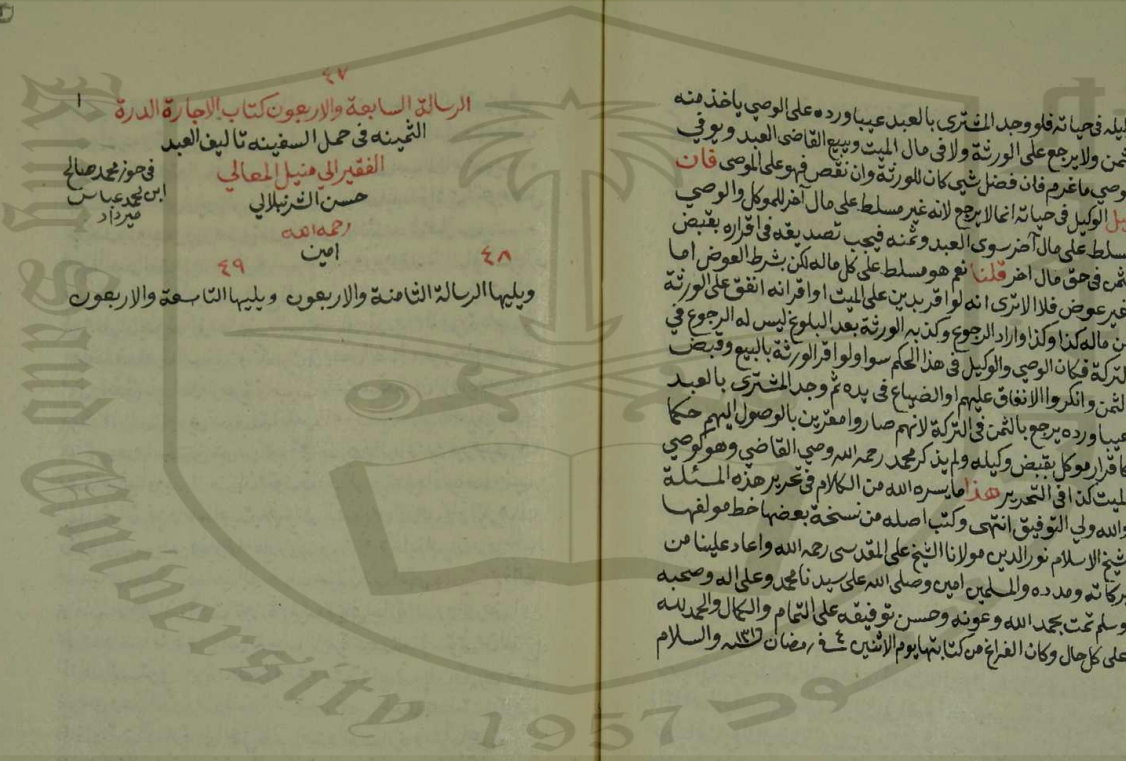 ليله في حياته فلو وجد المشترى بالعبد عيبا ورده على الوصي ياخذ منه
ثمن ولا يرجع على الورثة ولا في مال الميت ويبيع القاضى العبد ويوفي
وصي ما غرم فان فضل شي كان للورثة وان نقص فهو على الموصى فان
يل الوكيل في حياته انما لا يرجع لانه غير مسلط على مال آخر للموكل والوصي
سلط على مال آخر سوى العبد وثمنه فيجب تصديقه في اقراره بقبض
ثمن في حق مال اخر قلنا نعم هو مسلط على كل ماله لكن بشرط العوض اما
غير عوض فلا الا ترى انه لو اقر بدين على الميت او اقر انه انفق على الورثة
من ماله كذا وكذا واراد الرجوع وكذبه الورثة بعد البلوغ ليس له الرجوع في
لتركة فكان الوصي والوكيل في هذا الحكم سوا ولو اقر الورثة بالبيع وقبض
لثمن وانكروا الانفاق عليهم او الضياع في يده ثم وجد المشترى بالعبد
عيبا ورده يرجع بالثمن في التركة لانهم صاروا مقرين بالوصول اليهم حكما
كاقرار موكل بقبض وكيله ولم يذكر محمد رحمه الله وصي القاضي وهو كوصي
لميت كذا في التحرير هذا ما يسره الله من الكلام في تحرير هذه المسئلة
والله ولي التوفيق انتهى وكتب اصله من نسخة بعضها خط مولفها
شيخ الاسلام نور الدين مولانا الشيخ على المقدسى رحمه الله واعاد علينا من
بركاته ومدده والمسلمين امين وصلى الله على سيدنا محمد وعلى اله وصحبه
وسلم تمت بحمد الله وعونه وحسن توفيقه على التمام والكمال والحمد لله
على كل حال وكان الفراغ من كتابتها يوم الاثنين ٤ رمضان ١٣١٦ والسلام
٤٧
الرسالة السابعة والاربعون كتاب الاجارة الدرة
١
الثمينه في حمل السفينه تاليف العبد
الفقير الى منيل المعالي
حسن الشرنبلالي
رحمه الله
امين
في حوز محمد صالح
ابن محمد عباس
ميرداد
٤٨
٤٩
ويليها الرسالة الثامنة والاربعون ويليها التاسعة والاربعون
King Saud University 1957